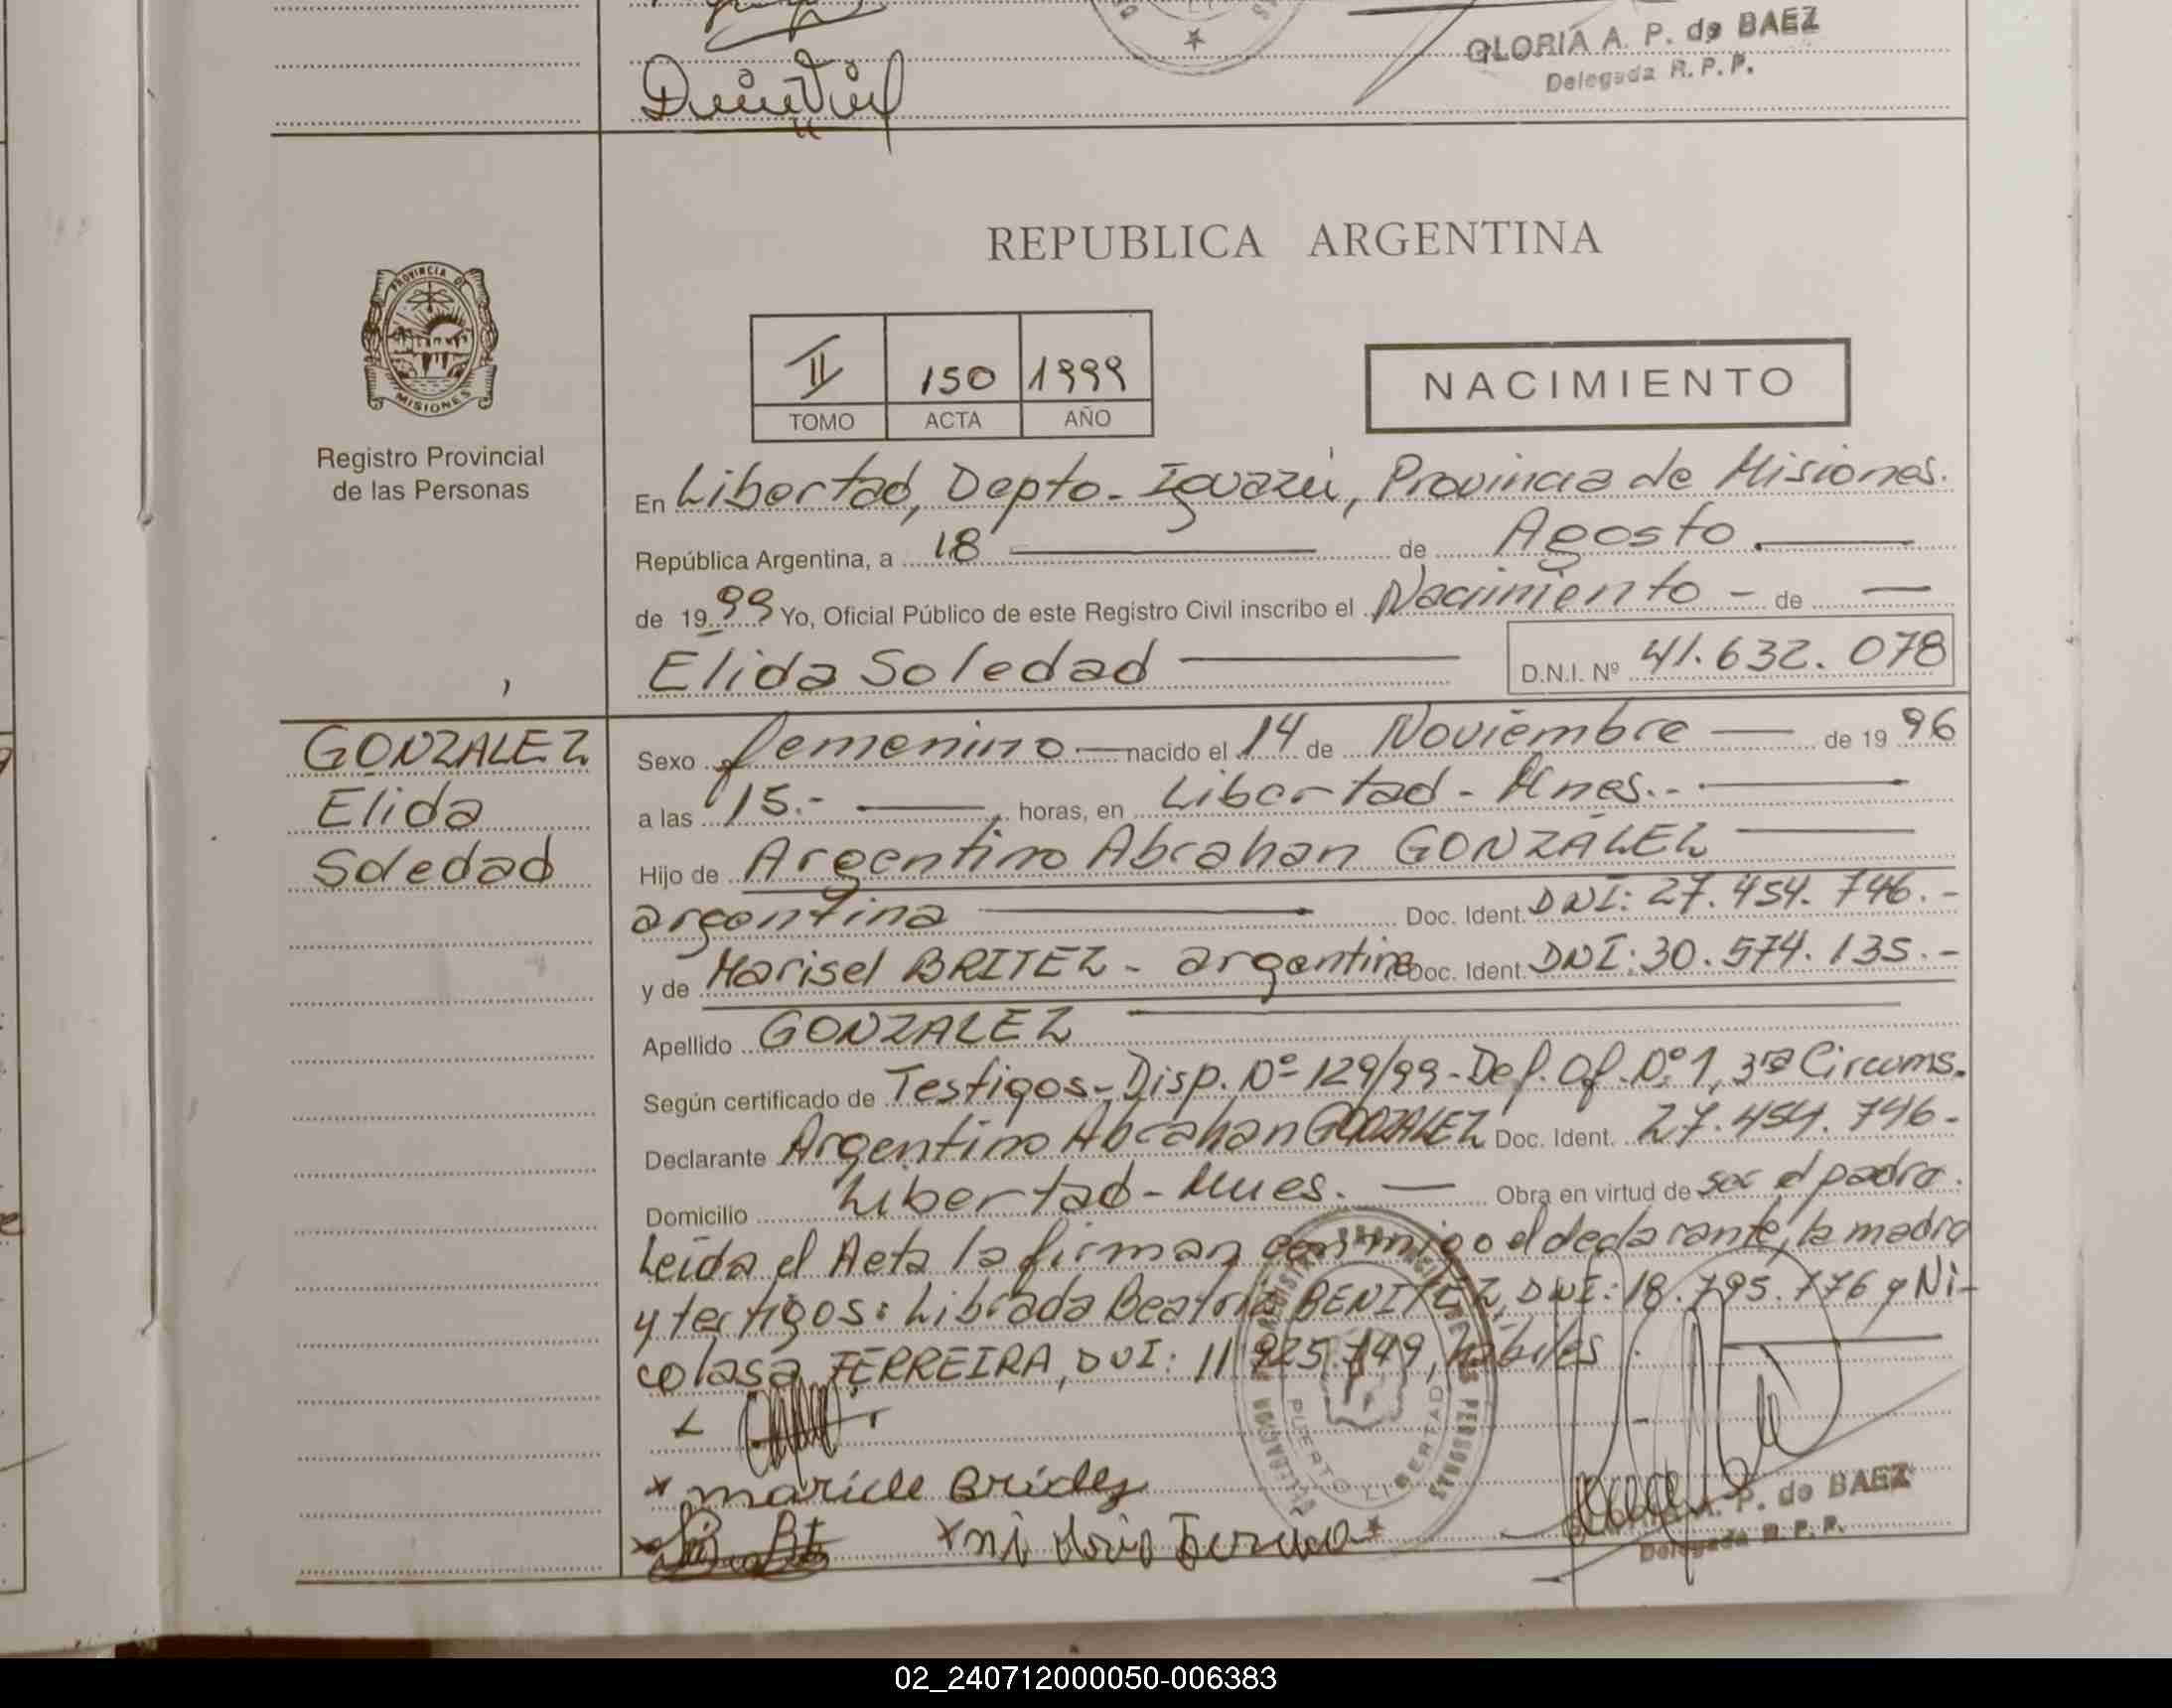 GLORIA A. P. de BAEZ
Delegada R. P. P.
REPUBLICA ARGENTINA
PROVINCIA DE
MISIONES
Registro Provincial
de las Personas
II 150 1999
TOMO ACTA AÑO
NACIMIENTO
En Libertad, Depto. Iguazú, Provincia de Misiones.
República Argentina, a 18 de Agosto
de 1999 Yo, Oficial Público de este Registro Civil inscribo el Nacimiento - de
Elida Soledad D.N.I. Nº 41.632.078
GONZALEZ
Elida
Soledad
Sexo femenino nacido el 14 de Noviembre de 1996
a las 15.- horas, en Libertad - Mnes.-
Hijo de Argentino Abrahan GONZÁLEZ
argentina Doc. Ident. DNI: 27.454.746.-
y de Marisel BRITEZ - argentina Doc. Ident. DNI: 30.574.135.-
Apellido GONZALEZ
Según certificado de Testigos - Disp. Nº 129/99 - Def. Of. Nº 1, 3ra Circuns.
Declarante Argentino Abrahan GONZALEZ Doc. Ident. 27.454.746-
Domicilio Libertad - Mnes. Obra en virtud de ser el padre.
Leída el Acta la firman conmigo el declarante, la madre
y testigos: Librada Beatriz BENITEZ, DNI: 18.795.776 y Ni-
colasa FERREIRA, DNI: 11.925.749, hábiles
PUERTO LIBERTAD
A. P. de BAEZ
Delegada R. P. P.
02_240712000050-006383